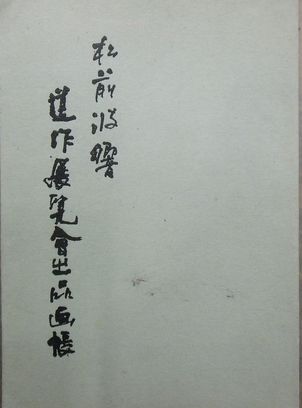 松前波響
遺作展覧會出品画帳